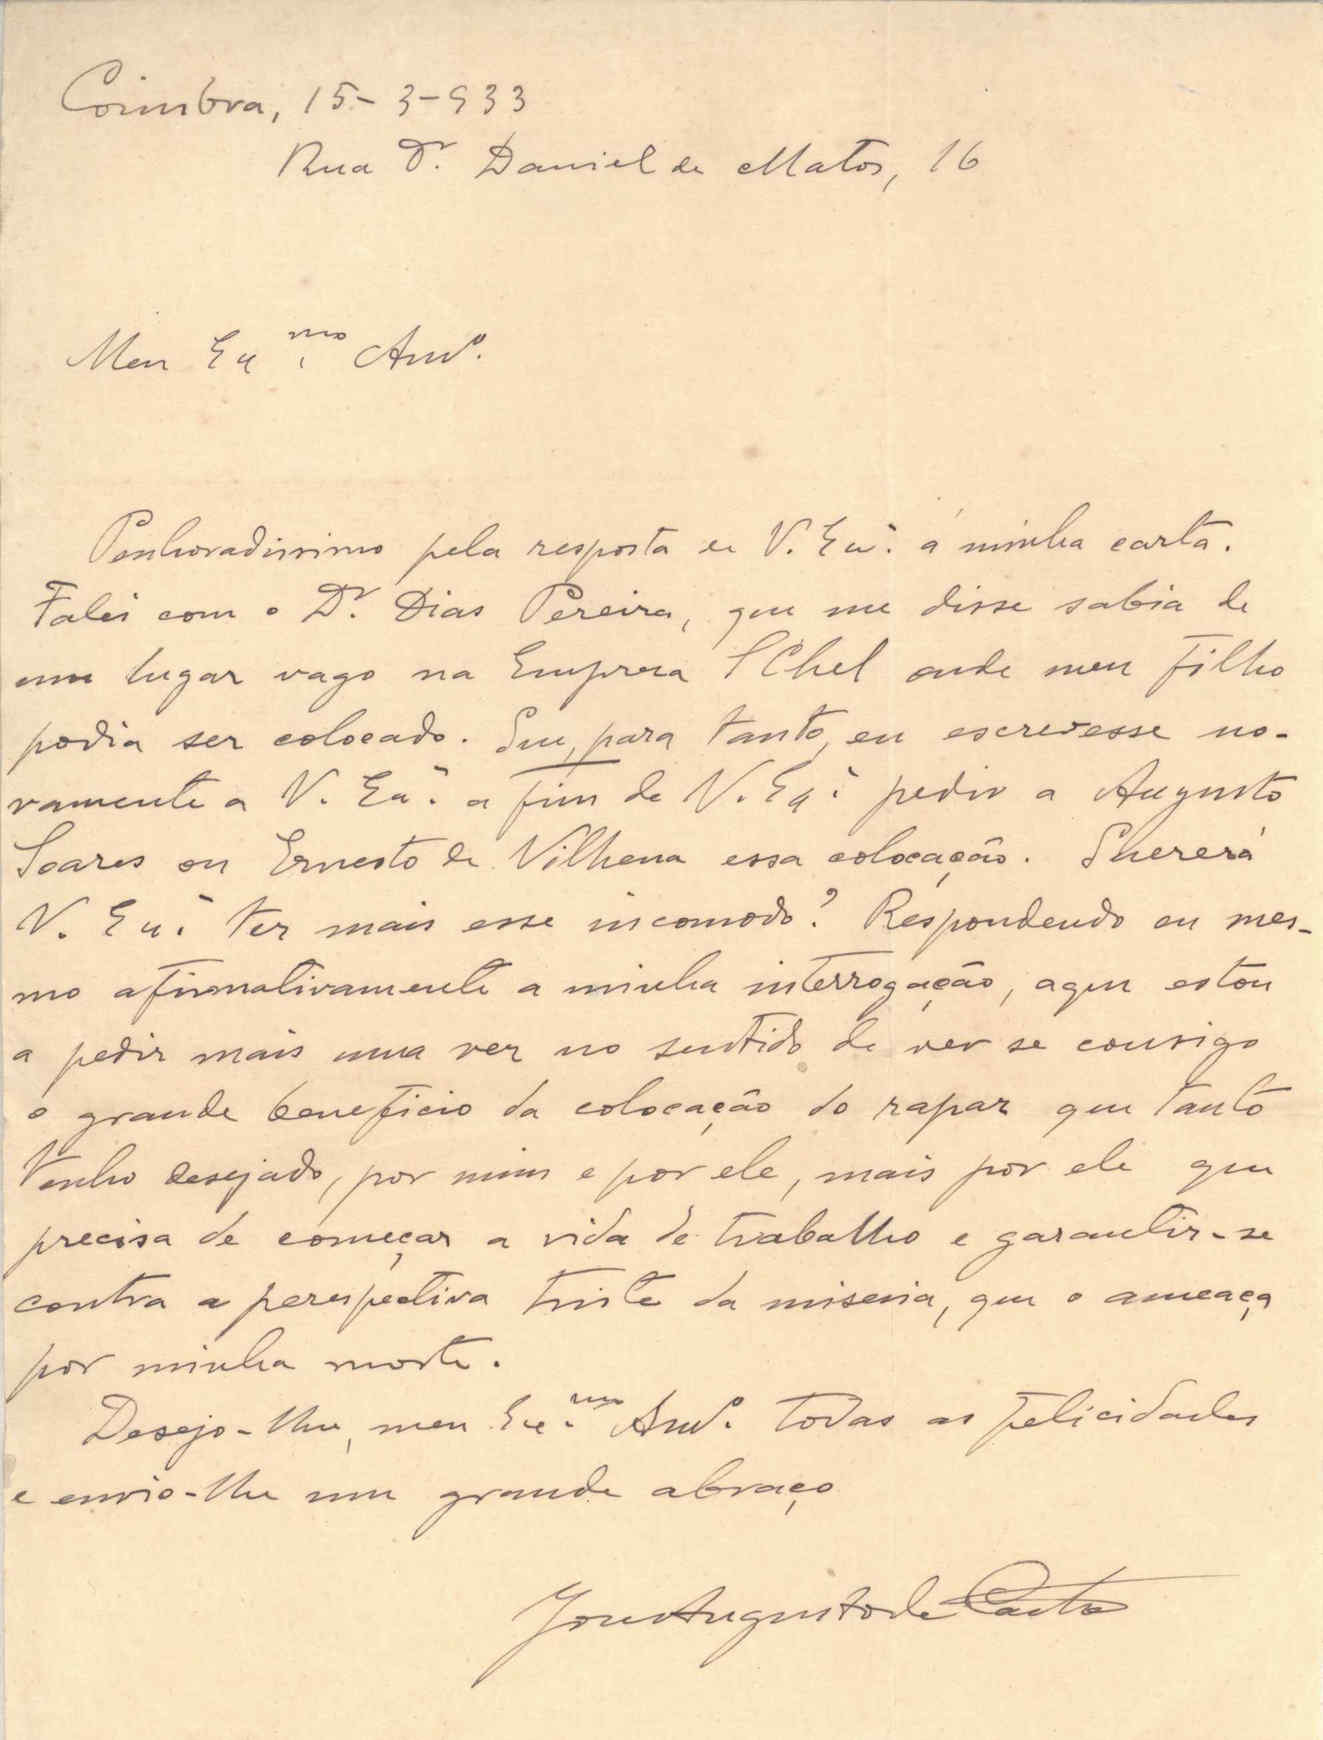 Coimbra, 15-3-933
Rua Dr. Daniel de Matos, 16
Meu Ex.mo Amº.
Penhoradissimo pela resposta de V. Exª. á minha carta.
Falei com o Dr. Dias Pereira, que me disse sabia de
um lugar vago na Empresa  onde meu filho
podia ser colocado. Que, para tanto, eu escrevesse no-
vamente a V. Exª. a fim de V. Exª. pedir a Augusto
Soares ou Ernesto de Vilhena essa colocação. Quererá
V. Exª. ter mais esse incomodo? Respondendo eu mes-
mo afirmativamente a minha interrogação, aqui estou
a pedir mais uma vez no sentido de ver se consigo
o grande beneficio da colocação do rapaz que tanto
tenho desejado, por mim e por ele, mais por ele que
precisa de começar a vida de trabalho e garantir-se
contra a perespectiva triste da miseria, que o ameaça
por minha morte.
Desejo-lhe, meu Ex.mo Amº. todas as felicidades
e envio-lhe um grande abraço
José Augusto de Castro